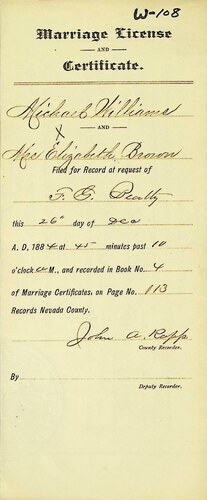 W-108
Marriage License
AND
Certificate.
Michael Williams
AND
Mrs Elizabeth Brown
Filed for Record at request of
F. G. Beatty
this 26" day of Dec
A. D. 1884 at 45 minutes past 10
o'clock A M., and recorded in Book No. 4
of Marriage Certificates, on Page No. 113
Records Nevada County.
John A. Rapp
County Recorder.
By
Deputy Recorder.